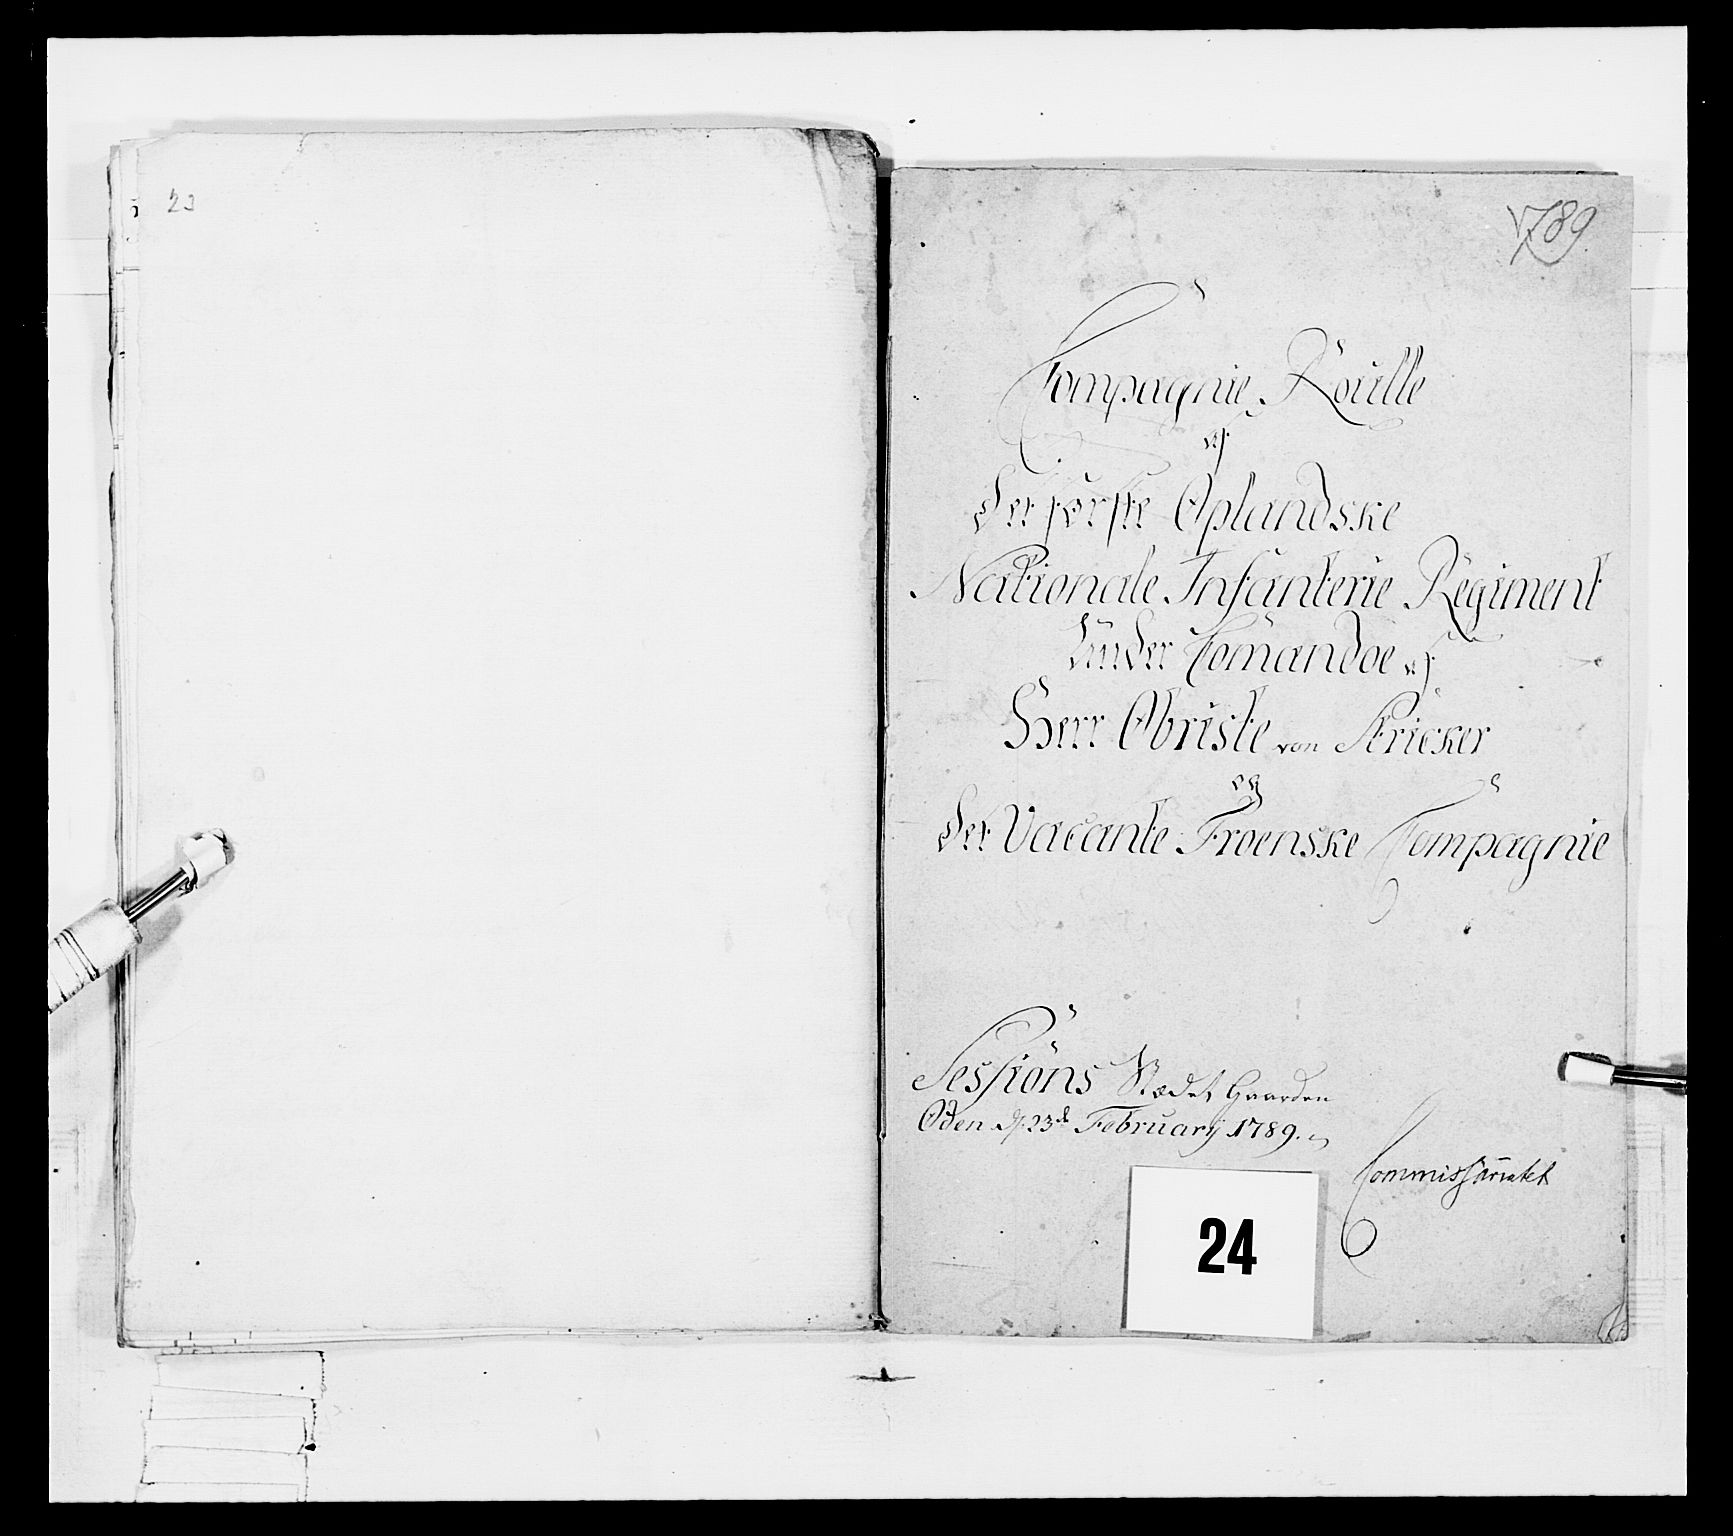 23
1789
Compagnie Roulle
af
Det første Oplandske
Nationale Infanterie Regiment
Under Comandoe af
Herr Obriste von Stricker
og
Det Vacante Froenske Compagnie
Sessions Stædet Gaarden
Oden d. 23d Februarÿ 1789.
Commissariatet
24